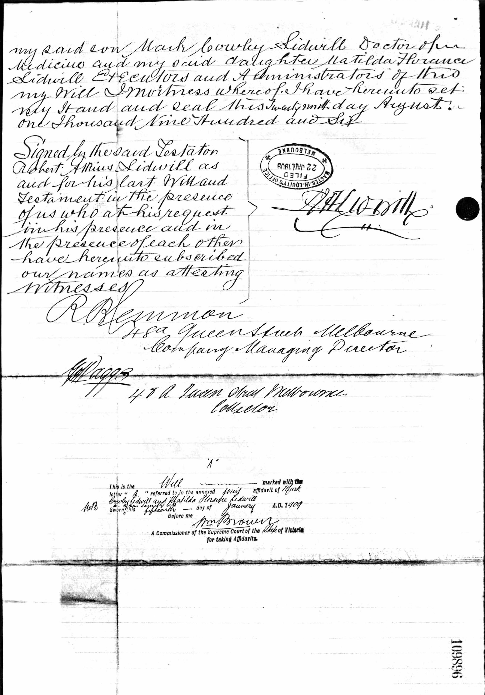 my said son Mark Cowley Lidwill Doctor of
Medicine and my said daughter Matilda Florance
Lidwill Executors and Administrators of this
my Will In witness whereof I have hereunto set
my Hand and seal this day August
one Thousand Nine Hundred and Six
Signed by the said Testator
Robert Atkins Lidwill as
and for his last Will and
Testament in the presence
of us who at his request
in his presence and in
the presence of each other
have hereunto subscribed
our names as attesting
Witnesses
MELBOURNE
22 JAN 1909
FILED
48a Queen Street Melbourne
Company Managing Director
48 A Queen Street Melbourne
Collector
"A"
This is the Will marked with the
letter "A" referred to in the annexed joint affidavit of Mark
Cowley Lidwill and Matilda Florance Lidwill
day of January A.D. 1909
Before me
Wm Brown
A Commissioner of the Supreme Court of the State of Victoria
for taking Affidavits.
109896